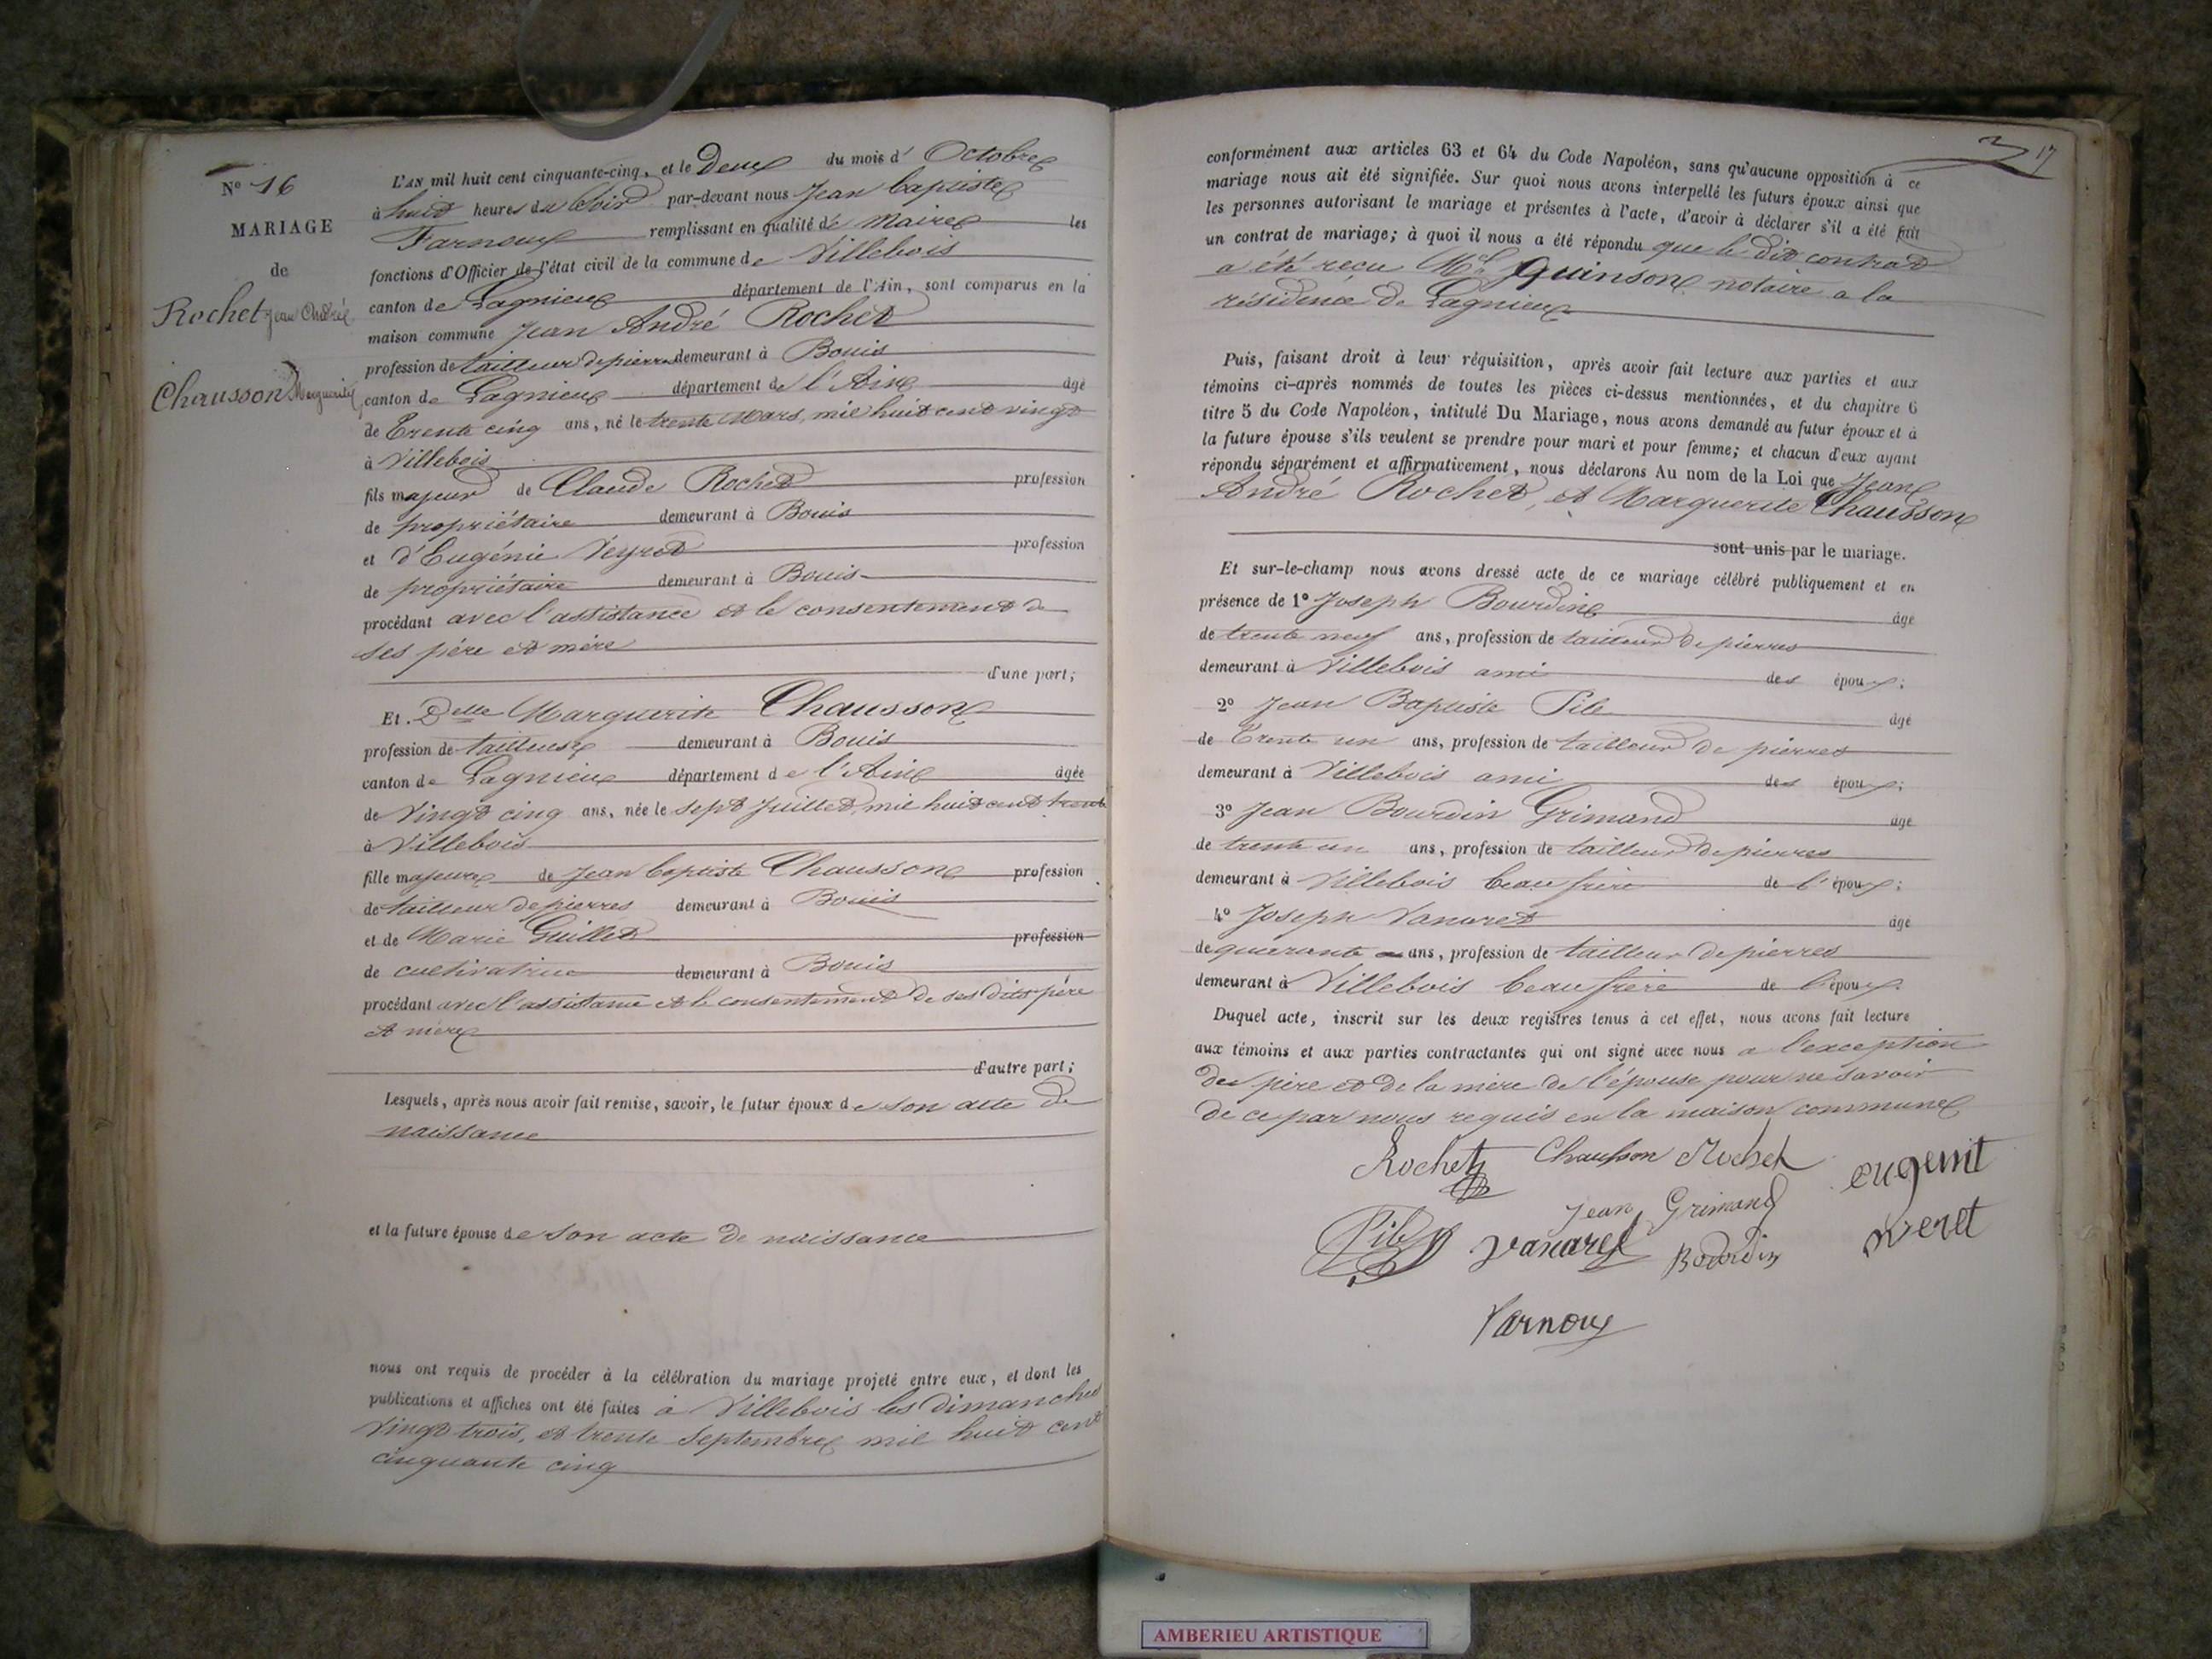 N° 16
MARIAGE
de
Rochet Jean André
Chausson Marguerite
L'AN mil huit cent cinquante-cinq, et le Deux du mois d' Octobre
à huit heures du Soir par-devant nous Jean baptiste
Farnoux remplissant en qualité de Maire les
fonctions d'Officier de l'état civil de la commune de Villebois
canton de Lagnieux département de l'Ain, sont comparus en la
maison commune Jean André Rochet
profession de tailleur de pierres demeurant à Bouis
canton de Lagnieux département de l'Ain âgé
de Trente cinq ans, né le trente Mars, mil huit cent vingt
à Villebois
fils majeur de Claude Rochet profession
de propriétaire demeurant à Bouis
et d'Eugénie Veyret profession
de propriétaire demeurant à Bouis
procédant avec l'assistance et le consentement de
ses père et mère
d'une part;
Et. Delle Marguerite Chausson
profession de tailleuse demeurant à Bouis
canton de Lagnieux département de l'Ain âgée
de Vingt cinq ans, née le sept Juillet mil huit cent trente
à Villebois
fille majeure de Jean baptiste Chausson profession
de tailleur de pierres demeurant à Bouis
et de Marie Guillet profession
de cultivatrice demeurant à Bouis
procédant avec l'assistance et le consentement de ses dits père
et mère
d'autre part;
Lesquels, après nous avoir fait remise, savoir, le futur époux de son acte de
naissance
et la future épouse de son acte de naissance
nous ont requis de procéder à la célébration du mariage projeté entre eux, et dont les
publications et affiches ont été faites à Villebois les dimanches
Vingt trois, et trente Septembre mil huit cent
cinquante cinq
17
conformément aux articles 63 et 64 du Code Napoléon, sans qu'aucune opposition à ce
mariage nous ait été signifiée. Sur quoi nous avons interpellé les futurs époux ainsi que
les personnes autorisant le mariage et présentes à l'acte, d'avoir à déclarer s'il a été fait
un contrat de mariage; à quoi il nous a été répondu que le dit contrat
a été reçu Quinson notaire a la
résidence de Lagnieux
Puis, faisant droit à leur réquisition, après avoir fait lecture aux parties et aux
témoins ci-après nommés de toutes les pièces ci-dessus mentionnées, et du chapitre 6
titre 5 du Code Napoléon, intitulé Du Mariage, nous avons demandé au futur époux et à
la future épouse s'ils veulent se prendre pour mari et pour femme; et chacun d'eux ayant
répondu séparément et affirmativement, nous déclarons Au nom de la Loi que Jean
André Rochet, et Marguerite Chausson
sont unis par le mariage.
Et sur-le-champ nous avons dressé acte de ce mariage célébré publiquement et en
présence de 1° Joseph Bourdin âgé
de trente neuf ans, profession de tailleur de pierres
demeurant à Villebois ami des époux;
2° Jean Baptiste Pile âgé
de Trente un ans, profession de tailleur de pierres
demeurant à Villebois ami des époux;
3° Jean Bourdin Grimand âgé
de trente un ans, profession de tailleur de pierres
demeurant à Villebois beau frère de l'époux;
4° Joseph Vanaret âgé
de quarante ans, profession de tailleur de pierres
demeurant à Villebois beau frère de l'époux.
Duquel acte, inscrit sur les deux registres tenus à cet effet, nous avons fait lecture
aux témoins et aux parties contractantes qui ont signé avec nous a l'exception
des père et de la mère de l'épouse pour ne savoir
de ce par nous requis en la maison commune
Rochet Chausson Rochet eugenit
Jean Grimand
Pile Vanaret Bourdin veret
Farnoux
AMBERIEU ARTISTIQUE